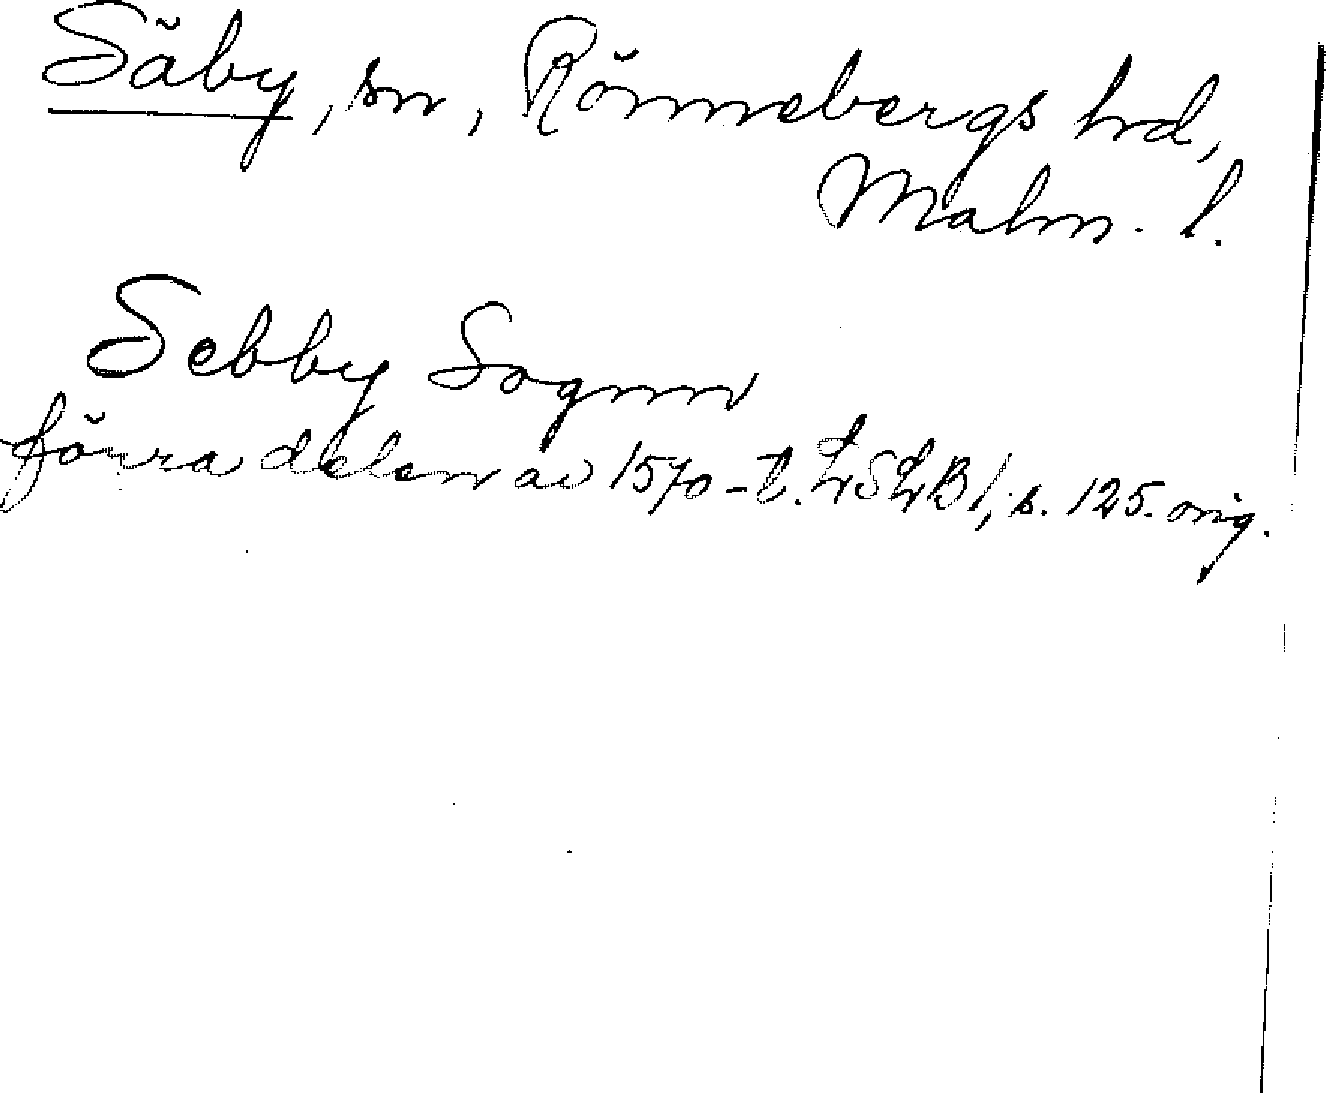 Säby, sn, Rönnebergs hrd,
Malm. l.
Sebby Sognn
förra delen av 1570-t. LSLB 1, s. 125. orig.